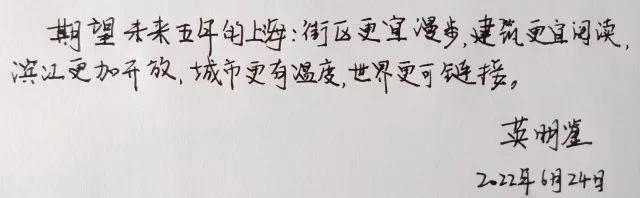 期望未来五年的上海:街区更宜漫步,建筑更宜阅读,
滨江更加开放,城市更有温度,世界更可链接。
英明鉴
2022年6月24日